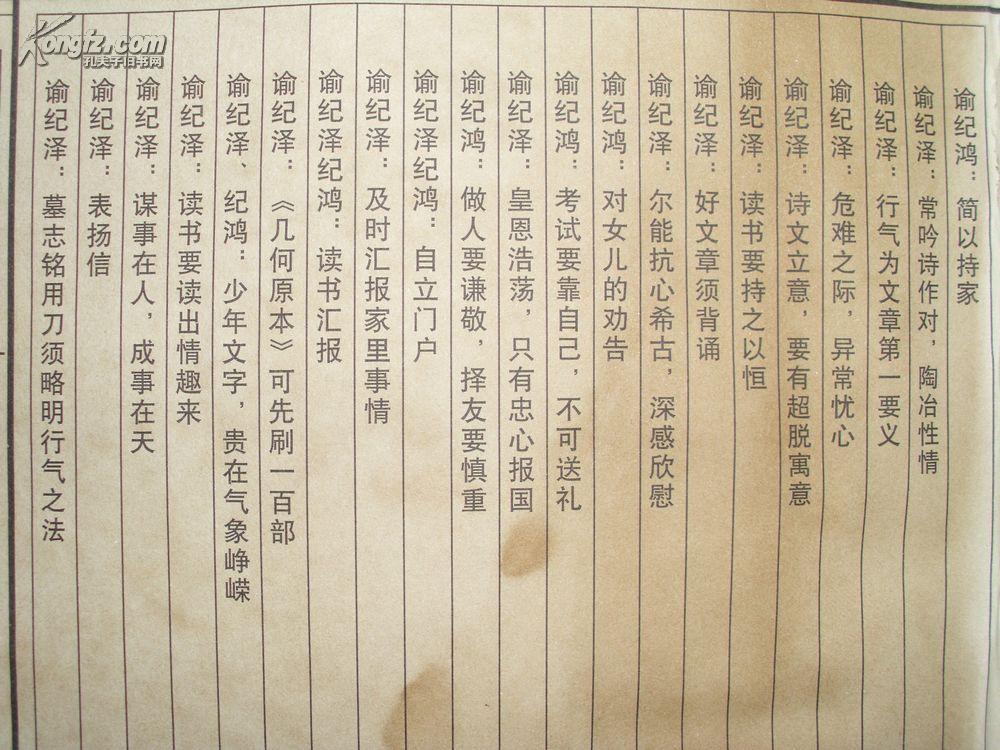 谕纪鸿：简以持家
谕纪泽：常吟诗作对，陶冶性情
谕纪泽：行气为文章第一要义
谕纪泽：危难之际，异常忧心
谕纪泽：诗文立意，要有超脱寓意
谕纪泽：读书要持之以恒
谕纪泽：好文章须背诵
谕纪泽：尔能抗心希古，深感欣慰
谕纪鸿：对女儿的劝告
谕纪鸿：考试要靠自己，不可送礼
谕纪泽：皇恩浩荡，只有忠心报国
谕纪鸿：做人要谦敬，择友要慎重
谕纪泽纪鸿：自立门户
谕纪泽：及时汇报家里事情
谕纪泽纪鸿：读书汇报
谕纪泽：《几何原本》可先刷一百部
谕纪泽、纪鸿：少年文字，贵在气象峥嵘
谕纪泽：读书要读出情趣来
谕纪泽：谋事在人，成事在天
谕纪泽：表扬信
谕纪泽：墓志铭用刀须略明行气之法
Kongfz.com
孔夫子旧书网